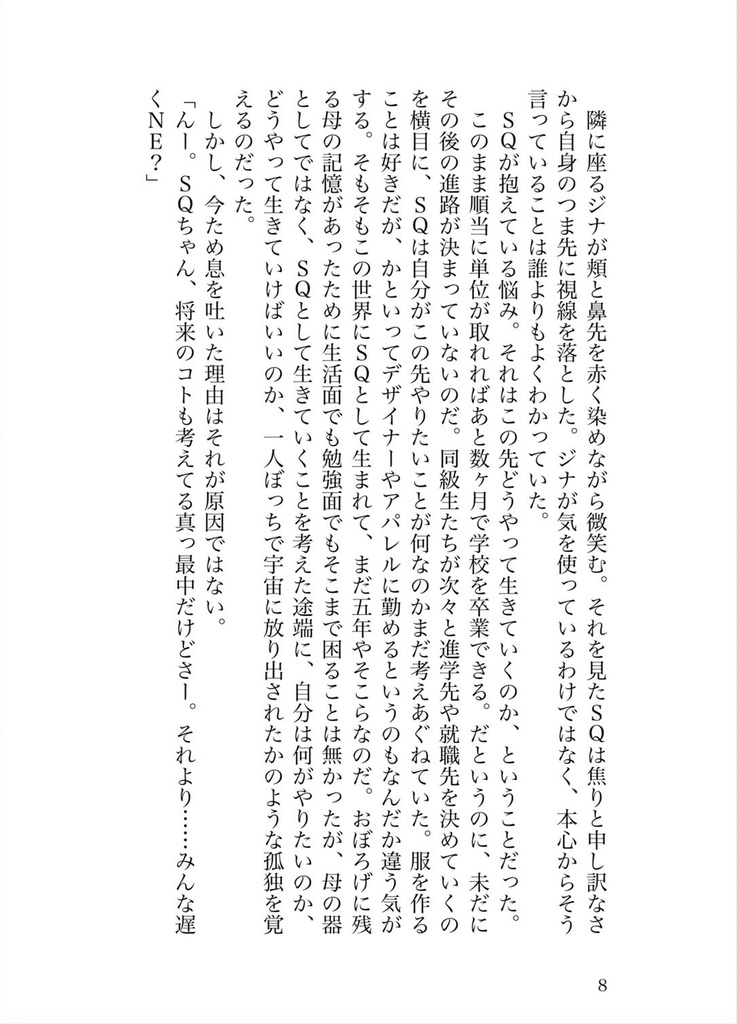 隣に座るジナが頬と鼻先を赤く染めながら微笑む。それを見たＳＱは焦りと申し訳なさ
から自身のつま先に視線を落とした。ジナが気を使っているわけではなく、本心からそう
言っていることは誰よりもよくわかっていた。
　ＳＱが抱えている悩み。それはこの先どうやって生きていくのか、ということだった。
　このまま順当に単位が取れればあと数ヶ月で学校を卒業できる。だというのに、未だに
その後の進路が決まっていないのだ。同級生たちが次々と進学先や就職先を決めていくの
を横目に、ＳＱは自分がこの先やりたいことが何なのかまだ考えあぐねていた。服を作る
ことは好きだが、かといってデザイナーやアパレルに勤めるというのもなんだか違う気が
する。そもそもこの世界にＳＱとして生まれて、まだ五年やそこらなのだ。おぼろげに残
る母の記憶があったために生活面でも勉強面でもそこまで困ることは無かったが、母の器
としてではなく、ＳＱとして生きていくことを考えた途端に、自分は何がやりたいのか、
どうやって生きていけばいいのか、一人ぼっちで宇宙に放り出されたかのような孤独を覚
えるのだった。
　しかし、今ため息を吐いた理由はそれが原因ではない。
「んー。ＳＱちゃん、将来のコトも考えてる真っ最中だけどさー。それより……みんな遅
くＮＥ？」
8